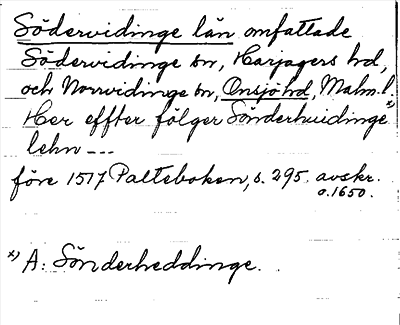 Södervidinge län omfattade
Södervidinge sn, Harjagers hd,
och Norrvidinge sn, Onsjö hd, Malm. l.
Her effter fölger Sönderhuidinge x)
lehn ---
före 1517 Palteboken, s. 295. avskr.
o. 1650.
x) A: Sönderheddinge.